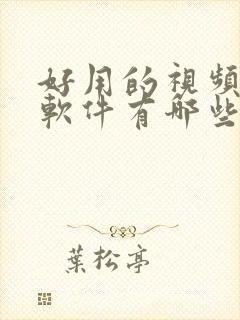 好用的視頻
軟件有哪些
葉松亭